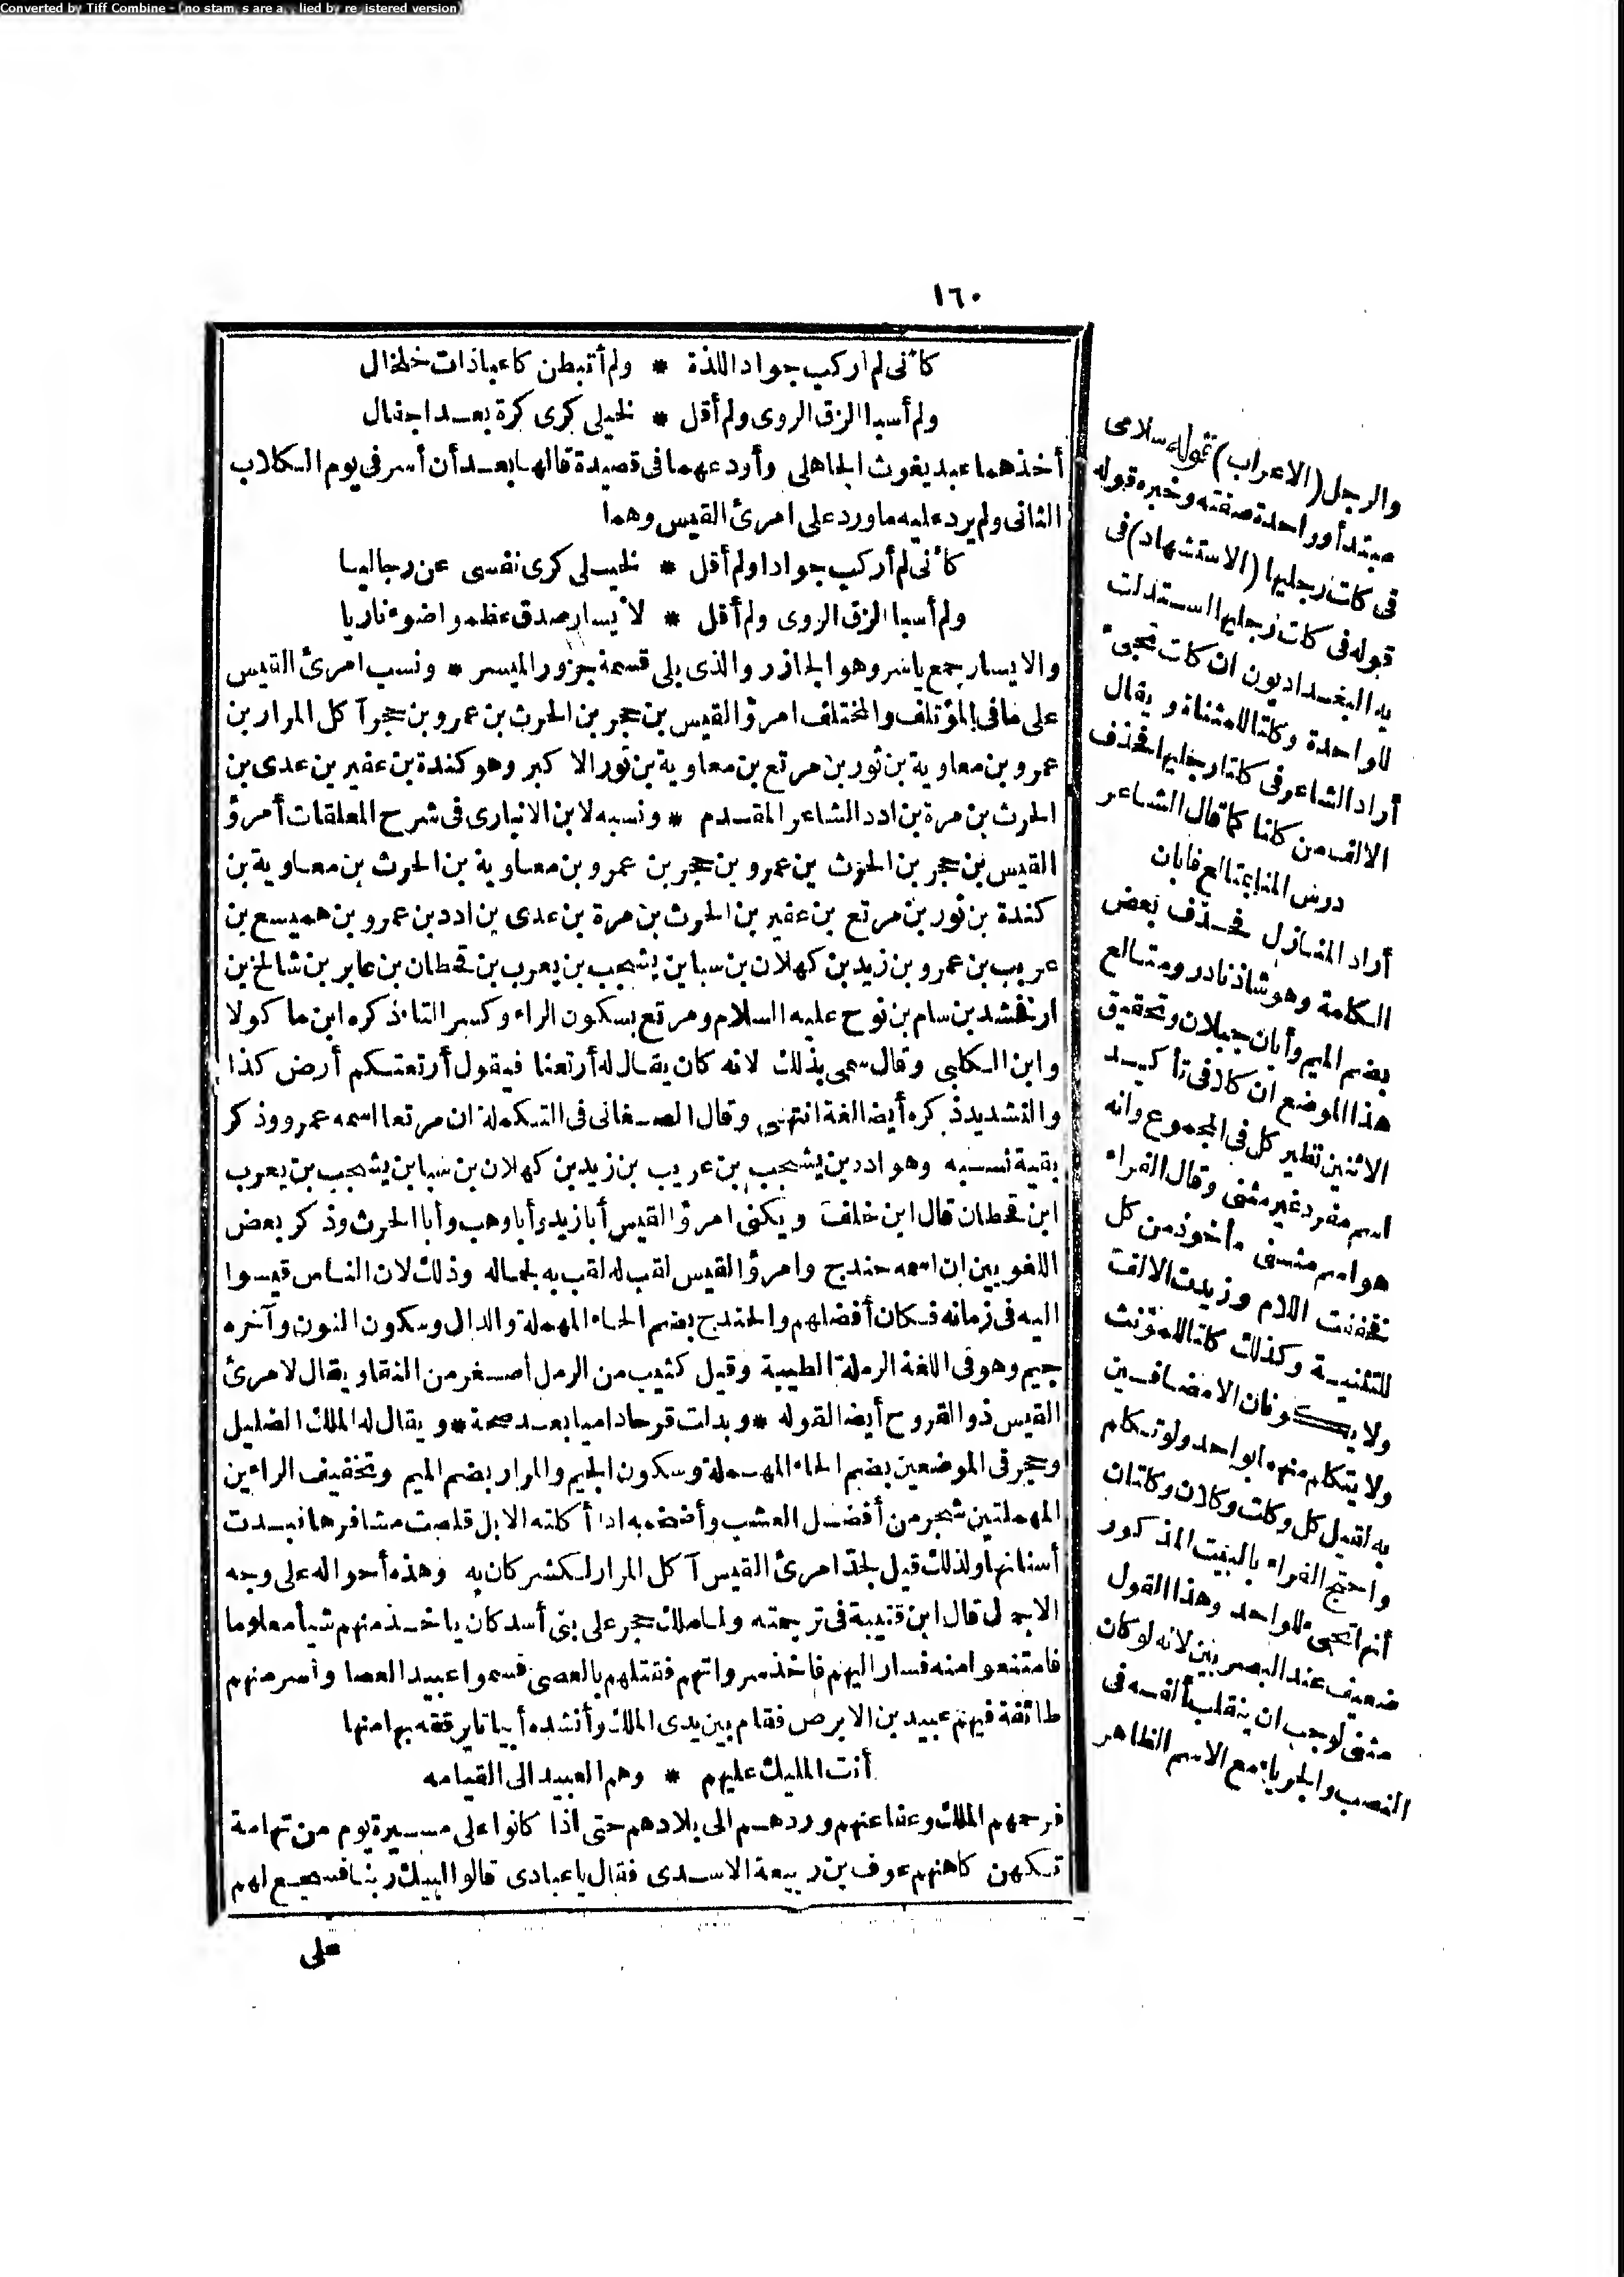 Converted by Tiff Combine - (no stamps are applied by registered version)
١٦٠
كأنى لم اركب جواد اللذة * ولم أتبطن كاعباذات خلخال
ولم أسبا الزق الروى ولم أقل * لخيلى كرى كرة بعد اجفال
أخذهما عبد يغوث الجاهلى وأردعهما فى قصيدة قالها بعد أن أسر فى يوم الكلاب
الثانى ولم يرد عليه ما ورد على امرئ القيس وهما
كأنى لم أركب جوادا ولم أقل * لخيلى كرى نفسى عن رجاليا
ولم أسبا الزق الروى ولم أقل * لأيسار صدق عظموا ضوء ناريا
والايسار جمع ياسر وهو الجازر والذى يلى قسمة جزور الميسر * ونسب امرئ القيس
على ما فى المؤتلف والمختلف امرؤ القيس بن حجر بن الحرث بن عمرو بن حجر آكل المرار بن
عمرو بن معاوية بن ثور بن مرتع بن معاوية بن ثور الاكبر وهو كندة بن عفير بن عدى بن
الحرث بن مرة بن ادد الشاعر المقدم * ونسبه لابن الانبارى فى شرح المعلقات أمرؤ
القيس بن حجر بن الحرث بن عمرو بن حجر بن عمرو بن معاوية بن الحرث بن معاوية بن
كندة بن ثور بن مرتع بن عفير بن الحرث بن مرة بن عدى بن ادد بن عمرو بن هميسع بن
عريب بن عمرو بن زيد بن كهلان بن سبا بن يشجب بن يعرب بن قحطان بن عابر بن شالخ بن
ارفخشد بن سام بن نوح عليه السلام ومرتع بسكون الراء وكسر التاء ذكره ابن ماكولا
وابن الكلبى وقال سمى بذلك لانه كان يقال له أرتعنا فيقول أرتعتكم أرض كذا
والتشديد ذكره أيضا لغة انتهى وقال الصغانى فى التكملة ان مرتعا اسمه عمرو وذكر
بقية نسبه وهو ادد بن يشجب بن عريب بن زيد بن كهلان بن سبا بن يشجب بن يعرب
ابن قحطان قال ابن خلف ويكنى امرؤ القيس أبا زيد وأبا وهب وأبا الحرث وذكر بعض
اللغويين ان اسمه حندج وامرؤ القيس لقب له لقب به لجماله وذلك لان الناس قيسوا
اليه فى زمانه فكان أفضلهم والحندج بضم الحاء المهملة والدال وسكون النون وآخره
جيم وهو فى اللغة الرملة الطيبة وقيل كثيب من الرمل أصغر من النقا ويقال لامرئ
القيس ذو القروح أيضا لقوله * وبدلت قرحا داميا بعد صحة * ويقال له الملك الضليل
وحجر فى الموضعين بضم الحاء المهملة وسكون الجيم والمرار بضم الميم وتخفيف الراءين
المهملتين شجر من أفضل العشب وأضخمه اذا أكلته الابل قلصت مشافرها فبدت
أسنانها ولذلك قيل لجد امرئ القيس آكل المرار لكشر كان به وهذه أحواله على وجه
الاجمال قال ابن قتيبة فى ترجمته ولما ملك حجر على بنى أسد كان ياخذ منهم شيأ معلوما
فامتنعوا منه فسار اليهم فاخذ سرواتهم فقتلهم بالعصى فسموا عبيد العصا وأسر منهم
طائفة فيهم عبيد بن الابرص فقام بين يدى الملك وأنشده أبياتا يرققه بها منها
أنت المليك عليهم * وهم العبيد الى القيامه
فرحمهم الملك وعفا عنهم وردهم الى بلادهم حتى اذا كانوا على مسيرة يوم من تهامة
تكهن كاهنهم عوف بن ربيعة الاسدى فقال يا عبادى قالوا لبيك ربنا فسجع لهم
على
والرجل (الاعراب) قوله سلامى
مبتدأ وواحدة صفته وخبره قوله
فى كلت رجليها (الاستشهاد) فى
قوله فى كلت رجليها استدلت
به البغداديون ان كلت تجىء
للواحدة وكلتا للمثناة ويقال
أراد الشاعر فى كلتا رجليها فحذف
الالف من كلتا كما قال الشاعر
درس المنا بمتالع فابان
أراد المنازل فحذف بعض
الكلمة وهو شاذ نادر ومتالع
بضم الميم وأبان جبلان وتحقيق
هذا الموضع ان كلا فى تأكيد
الاثنين نظير كل فى المجموع وانه
اسم مفرد غير مثنى وقال الفراء
هو اسم مثنى مأخوذ من كل
فخففت اللام وزيدت الالف
للتثنية وكذلك كلتا للمؤنث
ولا يكونان الا مضافين
ولا يتكلم منهما بواحد ولو تكلم
به لقيل كل وكلت وكلان وكلتان
واحتج الفراء بالبيت المذكور
أنها تجىء للواحد وهذا القول
ضعيف عند البصريين لانه لو كان
مثنى لوجب ان ينقلب ألفه فى
النصب والجر ياء مع الاسم الظاهر